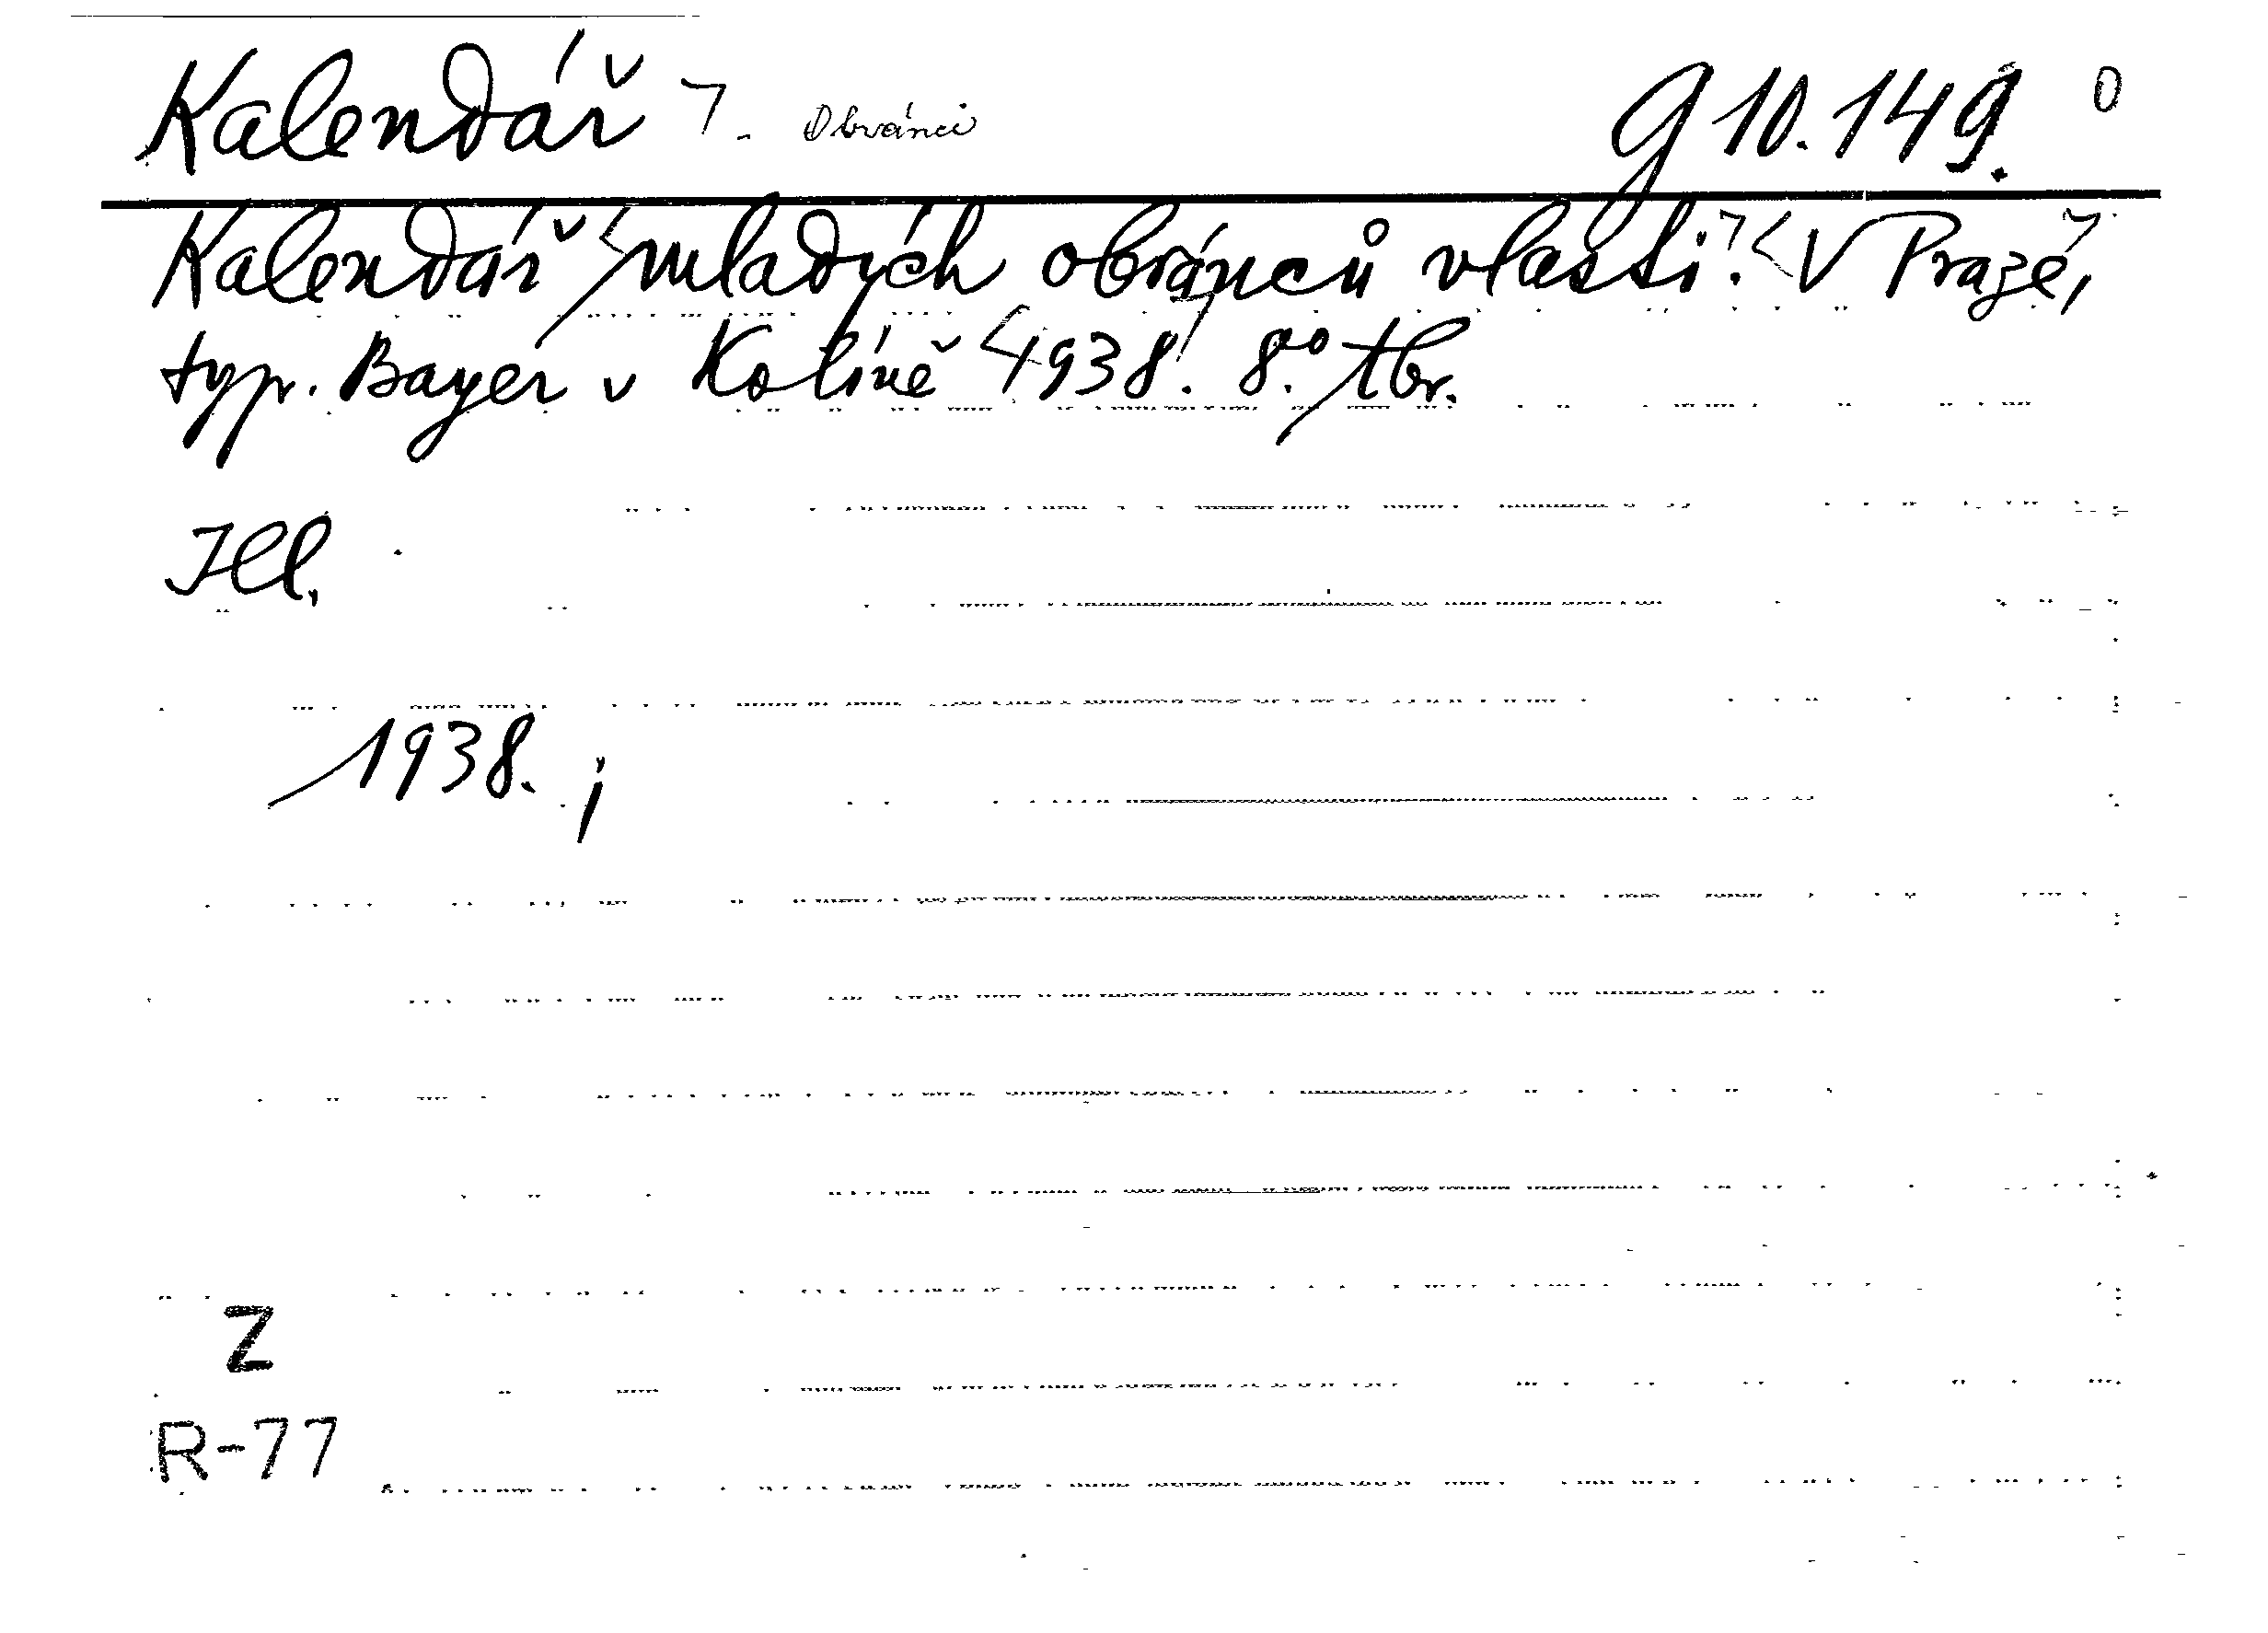 Kalendář 7. Obránci g 10.149. 0
Kalendář mladých obránců vlasti. V Praze,
typ. Bayer v Kolíně 1938. 8.° tbr.
Ill.
1938. ;
Z
R-77